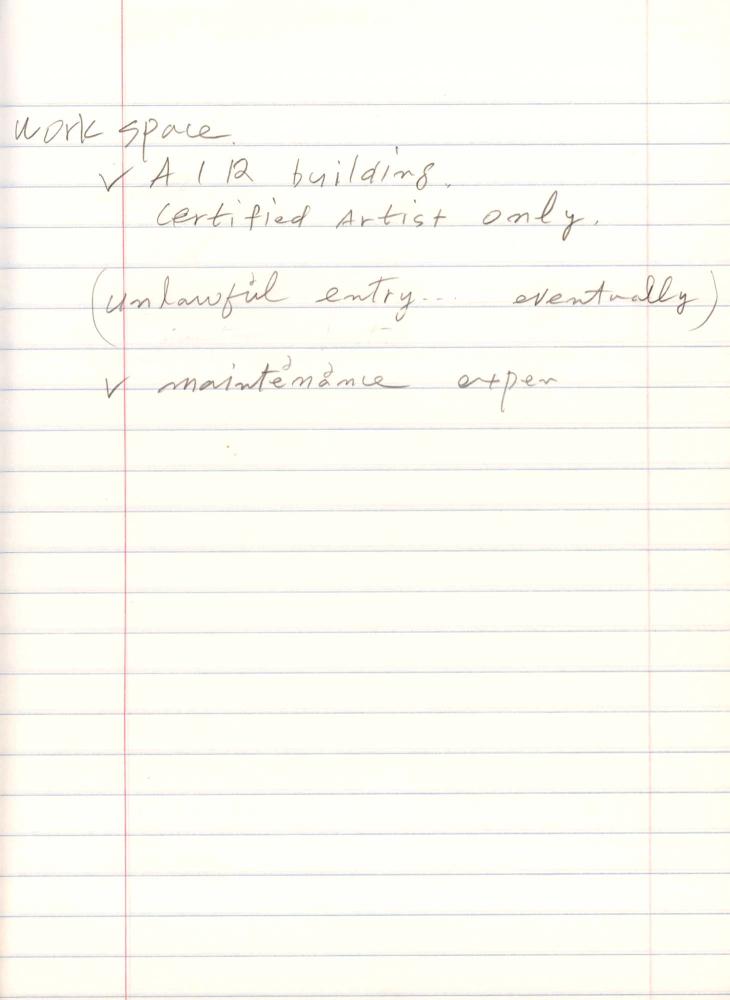 work space.
✓ A I R building.
certified Artist only.
(unlawful entry... eventually)
✓ maintenance expen